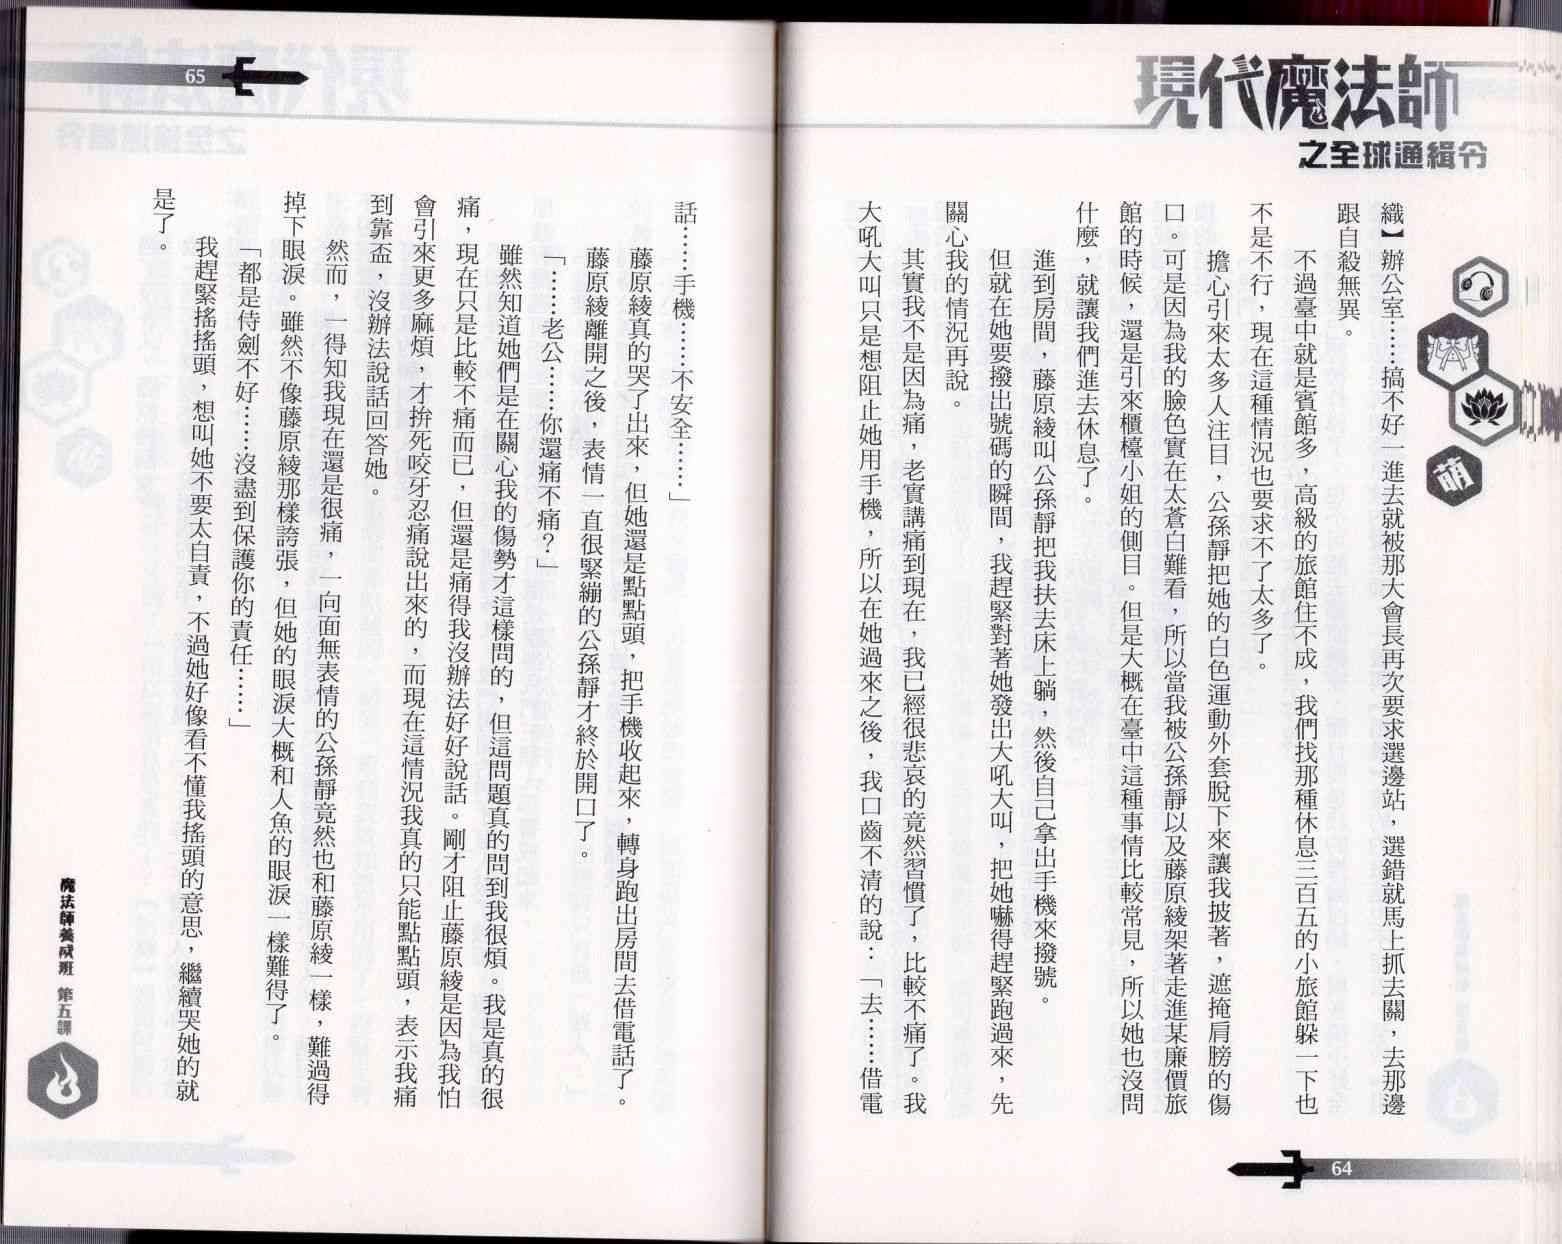 現代魔法師
之全球通緝令
織】辦公室……搞不好一進去就被那大會長再次要求選邊站，選錯就馬上抓去關，去那邊
跟自殺無異。
不過臺中就是賓館多，高級的旅館住不成，我們找那種休息三百五的小旅館躲一下也
不是不行，現在這種情況也要求不了太多了。
擔心引來太多人注目，公孫靜把她的白色運動外套脫下來讓我披著，遮掩肩膀的傷
口。可是因為我的臉色實在太蒼白難看，所以當我被公孫靜以及藤原綾架著走進某廉價旅
館的時候，還是引來櫃檯小姐的側目。但是大概在臺中這種事情比較常見，所以她也沒問
什麼，就讓我們進去休息了。
進到房間，藤原綾叫公孫靜把我扶去床上躺，然後自己拿出手機來撥號。
但就在她要撥出號碼的瞬間，我趕緊對著她發出大吼大叫，把她嚇得趕緊跑過來，先
關心我的情況再說。
其實我不是因為痛，老實講痛到現在，我已經很悲哀的竟然習慣了，比較不痛了。我
大吼大叫只是想阻止她用手機，所以在她過來之後，我口齒不清的說：「去……借電
64
65
話……手機……不安全……」
藤原綾真的哭了出來，但她還是點點頭，把手機收起來，轉身跑出房間去借電話了。
藤原綾離開之後，表情一直很緊繃的公孫靜才終於開口了。
「……老公……你還痛不痛？」
雖然知道她們是在關心我的傷勢才這樣問的，但這問題真的問到我很煩。我是真的很
痛，現在只是比較不痛而已，但還是痛得我沒辦法好好說話。剛才阻止藤原綾是因為我怕
會引來更多麻煩，才拚死咬牙忍痛說出來的，而現在這情況我真的只能點點頭，表示我痛
到靠盃，沒辦法說話回答她。
然而，一得知我現在還是很痛，一向面無表情的公孫靜竟然也和藤原綾一樣，難過得
掉下眼淚。雖然不像藤原綾那樣誇張，但她的眼淚大概和人魚的眼淚一樣難得了。
「都是侍劍不好……沒盡到保護你的責任……」
我趕緊搖搖頭，想叫她不要太自責，不過她好像看不懂我搖頭的意思，繼續哭她的就
是了。
魔法師養成班 第五課
萌